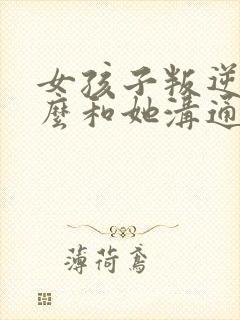 女孩子叛逆
麼和她溝通
薄荷鳶